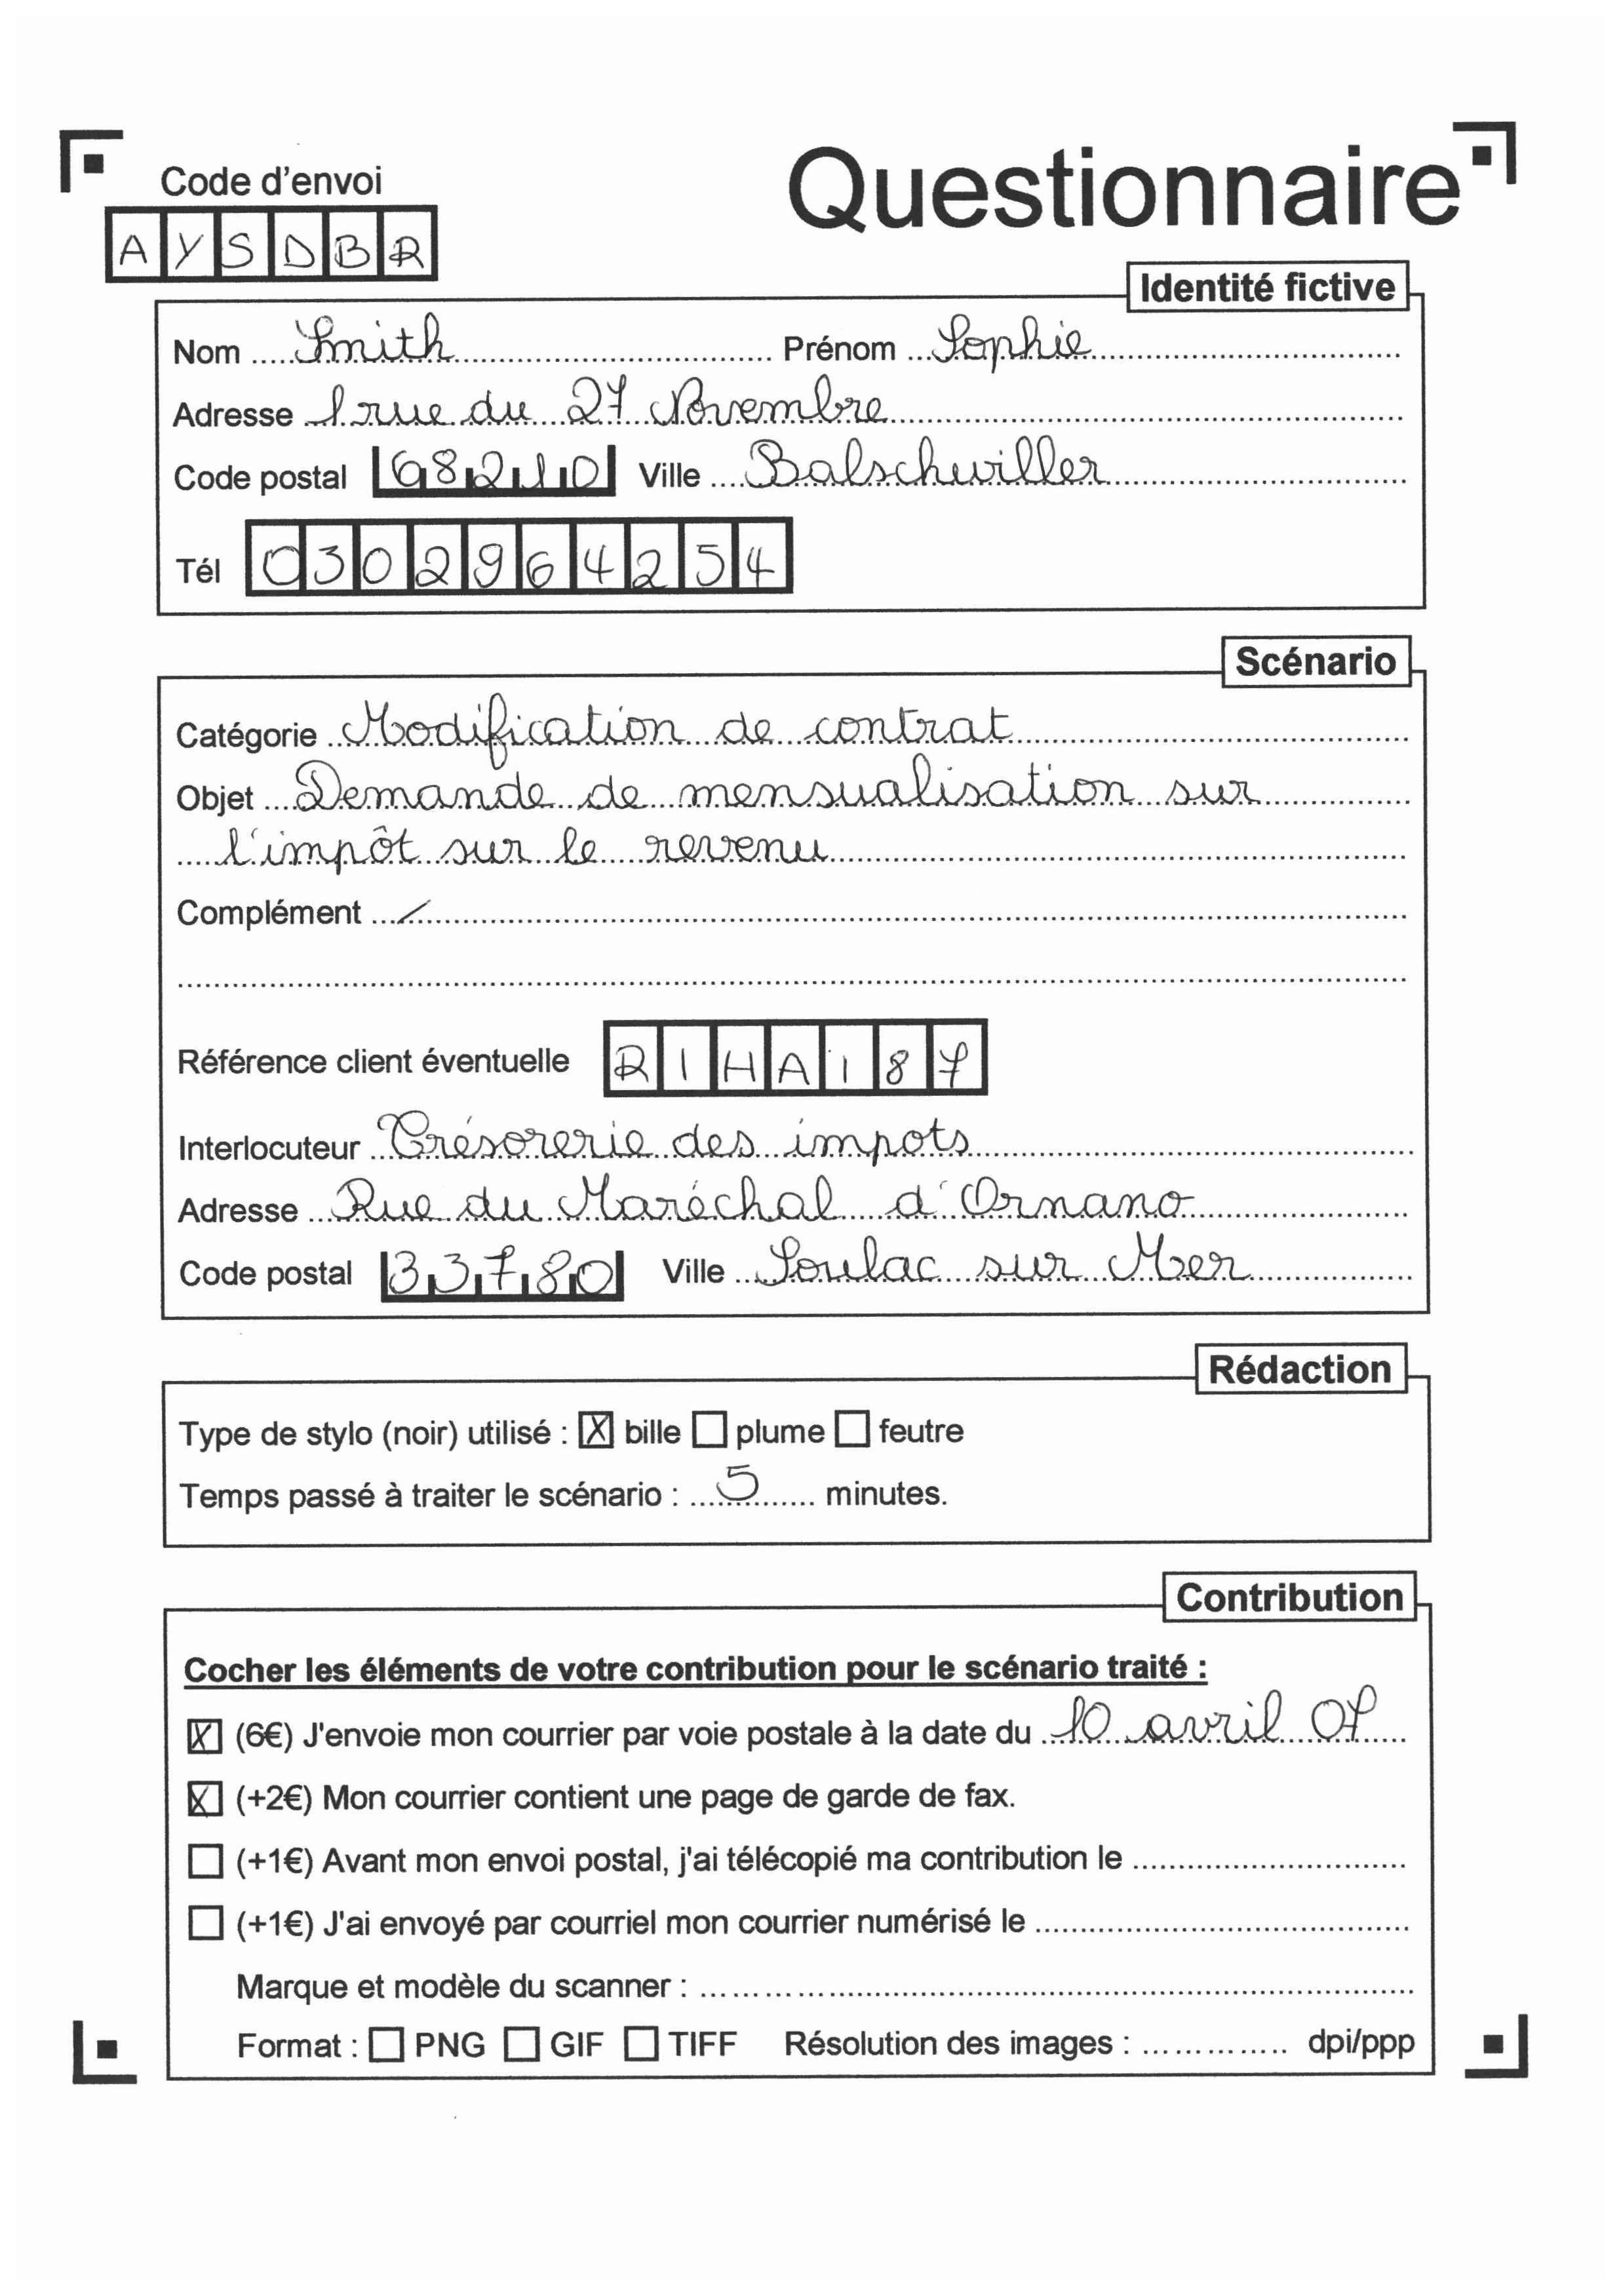 Code d'envoi
Questionnaire
AYSDBR
Identité fictive
Nom ..... Smith ..... Prénom ... Sophie .....
Adresse ... 1 rue du 27 Novembre .....
Code postal 68210 Ville .... Balschwiller .....
Tél 0302964254
Scénario
Catégorie .. Modification de contrat .....
Objet .... Demande de mensualisation sur .....
..... l'impôt sur le revenu .....
Complément ... / .....
Référence client éventuelle RIHA187
Interlocuteur .. Trésorerie des impots .....
Adresse .... Rue du Maréchal d'Ornano .....
Code postal 33780 Ville ... Soulac sur Mer .....
Rédaction
Type de stylo (noir) utilisé : ☒ bille ☐ plume ☐ feutre
Temps passé à traiter le scénario : ..... 5 ..... minutes.
Contribution
Cocher les éléments de votre contribution pour le scénario traité :
☒ (6€) J'envoie mon courrier par voie postale à la date du .. 10 avril 07 .....
☒ (+2€) Mon courrier contient une page de garde de fax.
☐ (+1€) Avant mon envoi postal, j'ai télécopié ma contribution le .....
☐ (+1€) J'ai envoyé par courriel mon courrier numérisé le .....
Marque et modèle du scanner : .....
Format : ☐ PNG ☐ GIF ☐ TIFF Résolution des images : ..... dpi/ppp